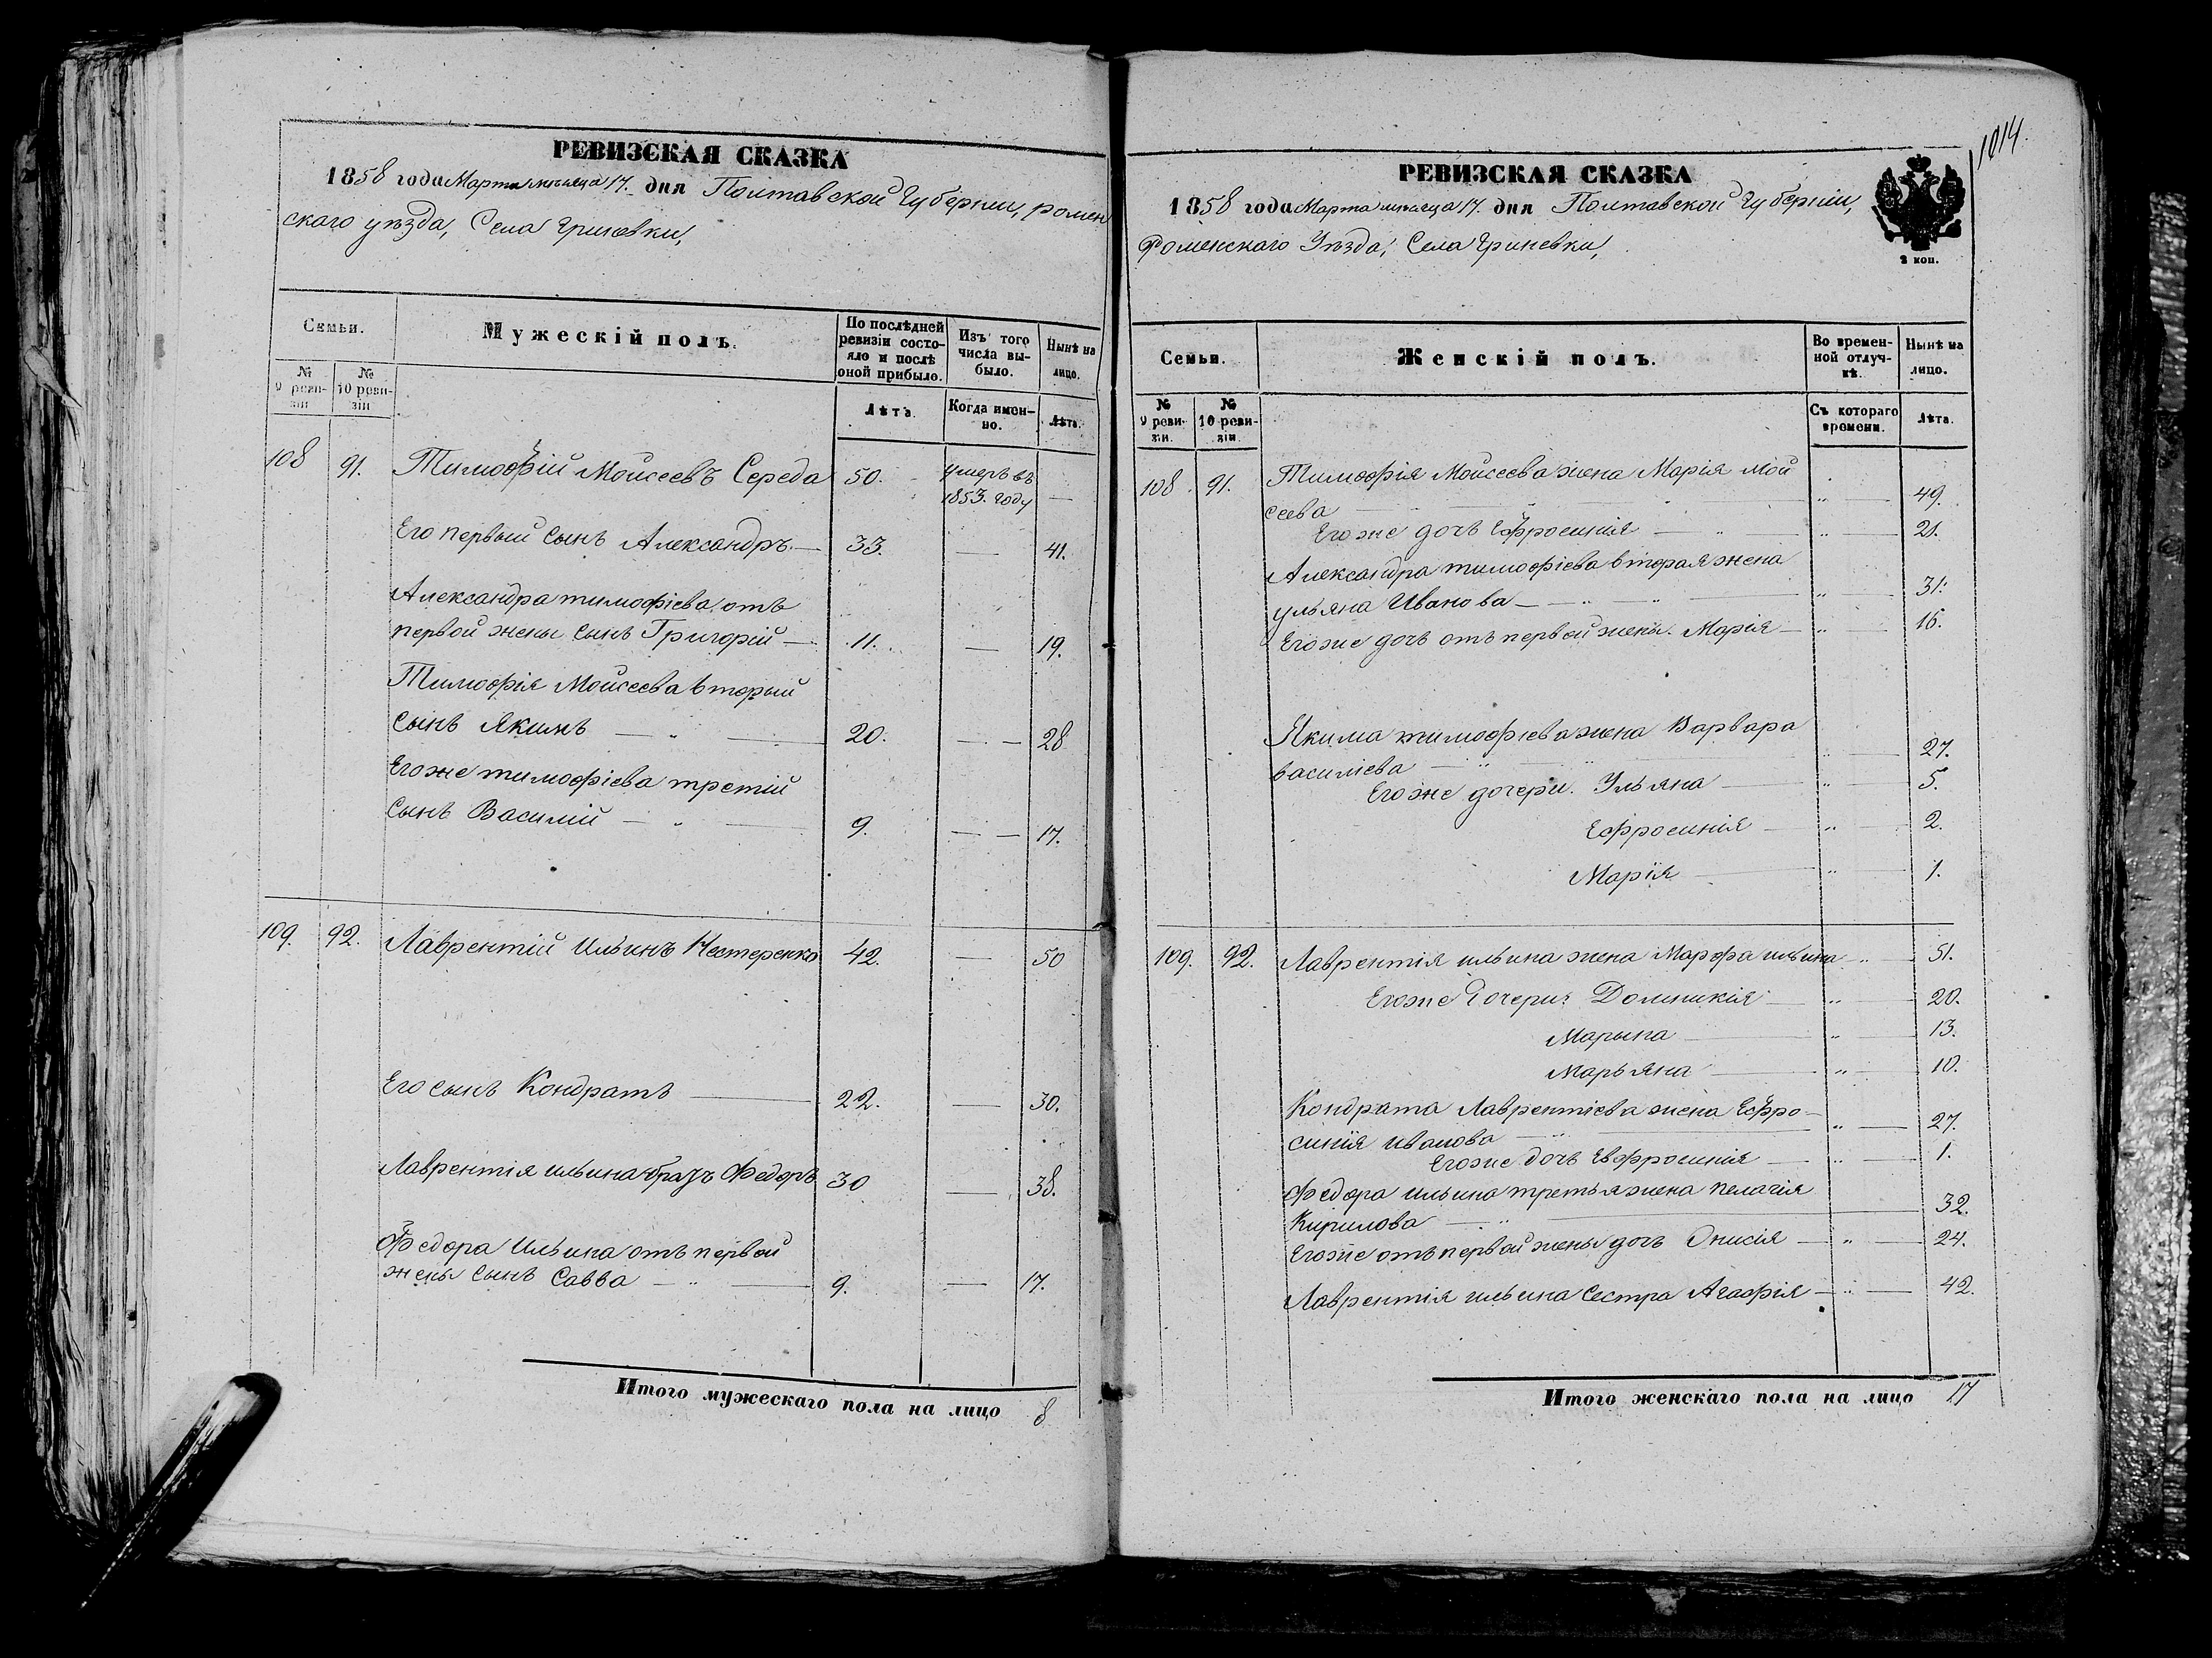 РЕВИЗСКАЯ СКАЗКА
1858 года Марта мѣсяца 17. дня Полтавской Губерніи, ромен
скаго уѣзда, Села Гриневки,
Семьи.
Мужескій полъ.
По послѣдней ревизіи состояло и послѣ оной прибыло.
Изъ того числа выбыло.
Нынѣ на лицо.
№ 9 ревизіи
№ 10 ревизіи
Лѣта.
Когда именно.
Лѣта.
108 91. Тимофій Моисеевъ Середа 50. умеръ въ 1853. году —
Его первый сынъ Александръ — 33. — 41.
Александра тимофіева отъ
первой жены сынъ Григорій — 11. — 19.
Тимофія Моисеева вторый
сынъ Якимъ — „ — 20. — — 28
Егоже тимофіева третій
сынъ Василій — „ — 9. — — 17.
109. 92. Лаврентій Ильинъ Нестеренко 42. — 50
Его сынъ Кондратъ — 22. — 30.
Лаврентія ильина братъ Федоръ 30 — 38.
Федора Ильина отъ первой
жены сынъ Савва — „ — 9. — 17.
Итого мужескаго пола на лицо 8
1014.
РЕВИЗСКАЯ СКАЗКА
1858 года Марта мѣсяца 17. дня Полтавской Губерніи,
Роменскаго Уѣзда, Села Гриневки,
2 коп.
Семьи.
Женскій полъ.
Во временной отлучкѣ.
Нынѣ на лицо.
№ 9 ревизіи.
№ 10 ревизіи.
Съ котораго времени.
Лѣта.
108. 91. Тимофія Моисеева жена Марія Мой
сеева — „ — 49.
Егоже дочь Ефросинія — „ — „ — 21.
Александра тимофіева вторая жена
ульяна Иванова — „ — „ — „ — 31.
Егоже дочь отъ первой жены Марія — „ — 16.
Якима тимофіева жена Варвара
василіева — „ — „ — 27.
Егоже дочери. Ульяна — „ — 5.
Ефросинія — „ — 2.
Марія — „ — 1.
109. 92. Лаврентія ильина жена Марфа ильина — „ — 51.
Егоже дочери: Домникія — „ — 20.
Марына — „ — 13.
Марьяна — „ — 10.
Кондрата Лаврентіева жена Ефро-
синія иванова — „ — „ — 27.
Егоже дочь Евфросинія — „ — 1.
Федора ильина третья жена пелагія
Кирилова — „ — 32.
Егоже отъ первой жены дочь Онисія — „ — 24.
Лаврентія ильина сестра Агафія — „ — 42.
Итого женскаго пола на лицо 17